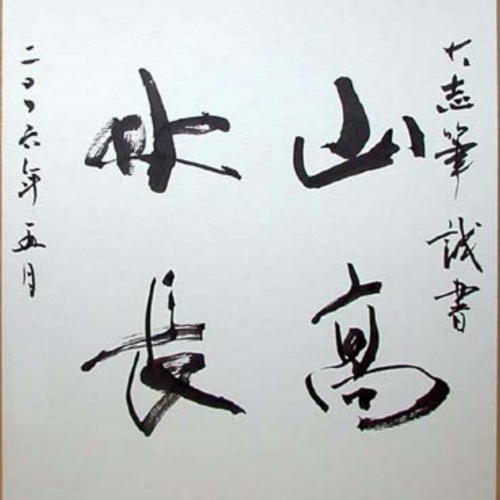 大志筆 誠書
山高
水長
二〇〇六年五月